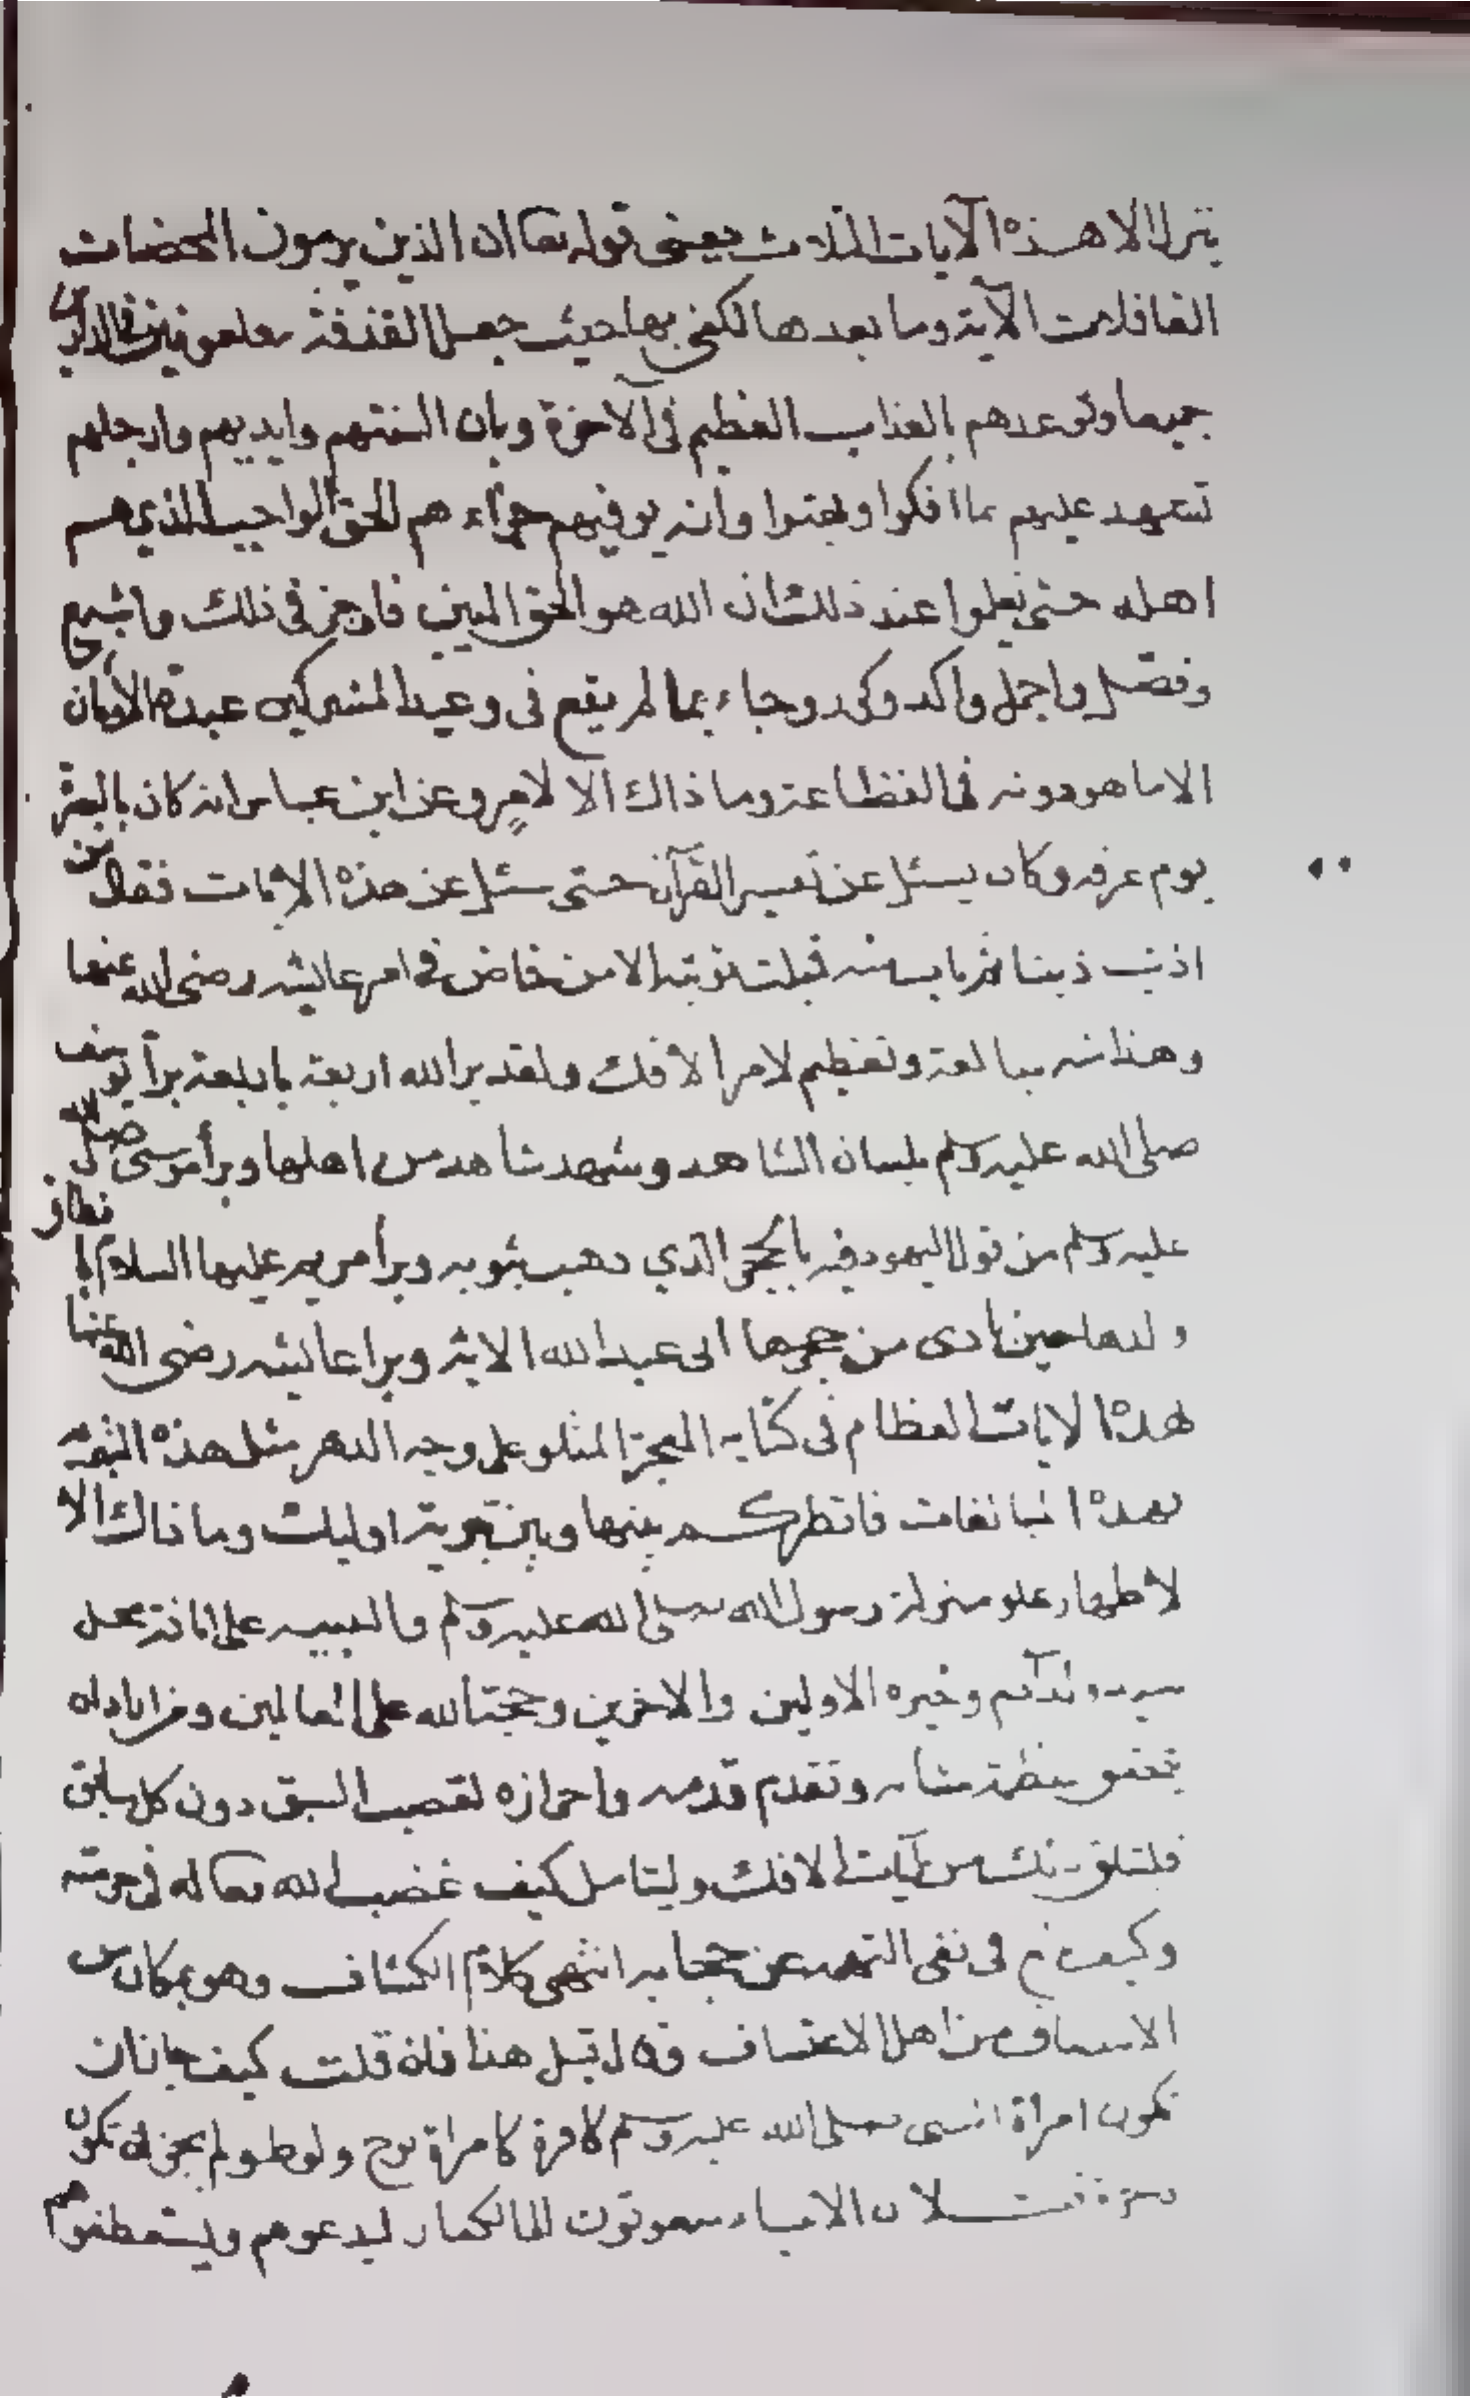 ينزل الا هذه الآيات الثلاث يعنى قوله تعا ان الذين يرمون المحصنات
الغافلات الآية وما بعدها لكفى بها حيث جعل القذفة ملعونين فى الدارين
جميعا وتوعدهم بالعذاب العظيم فى الآخرة وبان السنتهم وايديهم وارجلهم
تشهد عليهم بما افكوا وبهتوا وانه يوفيهم جزاءهم الحق الواجب الذي هم
اهله حتى يعلموا عند ذلك ان الله هو الحق المبين فاوجز فى ذلك واشبع
وفصّل واجمل واكد وكرر وجاء بما لم يقع فى وعيد المشركين عبدة الاوثان
الا ما هو دونه فى الفظاعة وما ذاك الا لامرٍ وعن ابن عباس انه كان بالبصرة
يوم عرفه وكان يسئل عن تفسير القرآن حتى سئل عن هذه الايات فقال من
اذنب ذنبا ثم تاب منه قبلت توبته الا من خاض فى امر عايشه رضى الله عنها
وهذا منه مبالغة وتعظيم لامر الافك ولقد برا الله اربعة باربعة برأ يوسف
صلى الله عليه وسلم بلسان الشاهد وشهد شاهد من اهلها وبرأ موسى صلى الله
عليه وسلم من قول اليهود فيه بالحجر الذي ذهب بثوبه وبرأ مريم عليها السلام بانطاق
ولدها حين نادى من حجرها انى عبد الله الاية وبرا عايشه رضى الله عنها
بهذه الايات العظام فى كتابه المعجز المتلو على وجه الدهر مثل هذه التبرئة
بهذه المبالغات فانظر كم بينها وبين تبرية اوليك وما ذاك الا
لاظهار علو منزلة رسول الله صلى الله عليه وسلم والتنبيه على انافة محل
سيد ولد آدم وخيره الاولين والاخرين وحجة الله على العالمين ومن اراد ان
يتحقق عظمة شانه وتقدم قدمه واحرازه لقصب السبق دون كل سابق
فليتلق ذلك من آيات الافك وليتامل كيف غضب الله تعا له فى حرمته
وكيف بالغ فى نفى التهمة عن حجابه انتهى كلام الكشاف وهو بمكان من
الانصاف من اهل الاعتساف وقال قبل هذا فان قلت كيف جاز ان
تكون امراة النبى صلى الله عليه وسلم كافرة كامراة نوح ولوط ولم يجز ان تكون
فاجرة قلت لان الانبياء مبعوثون الى الكفار ليدعوهم ويستعطفوهم